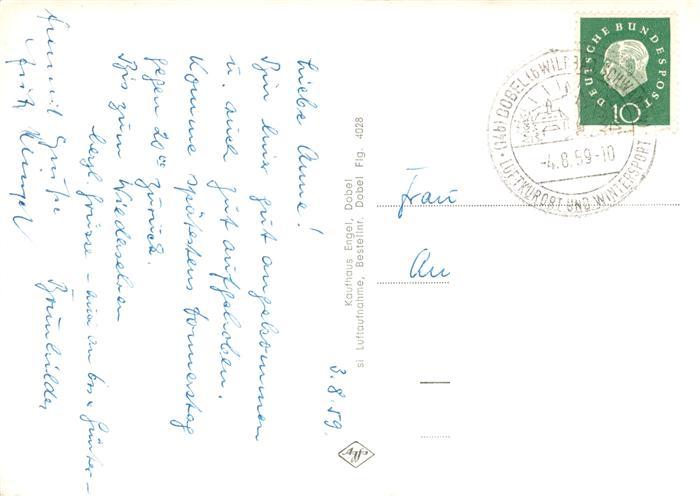 3.8.59.
Liebe Anne!
Bin hier gut angekommen
u. auch gut aufgehoben.
Komme spätestens Donnerstag
gegen 20 00 zurück.
Bis zum Wiedersehen
herzl. Grüsse - auch an Günter -
Brunhilde
Grüße
Fritz
Kaufhaus Engel, Dobel
si Luftaufnahme, Bestellnr. Dobel Flg. 4028
Frau
An
DEUTSCHE BUNDESPOST
10
(14b) DOBEL
-4.8.59-10
LUFTKURORT UND WINTERSPORT